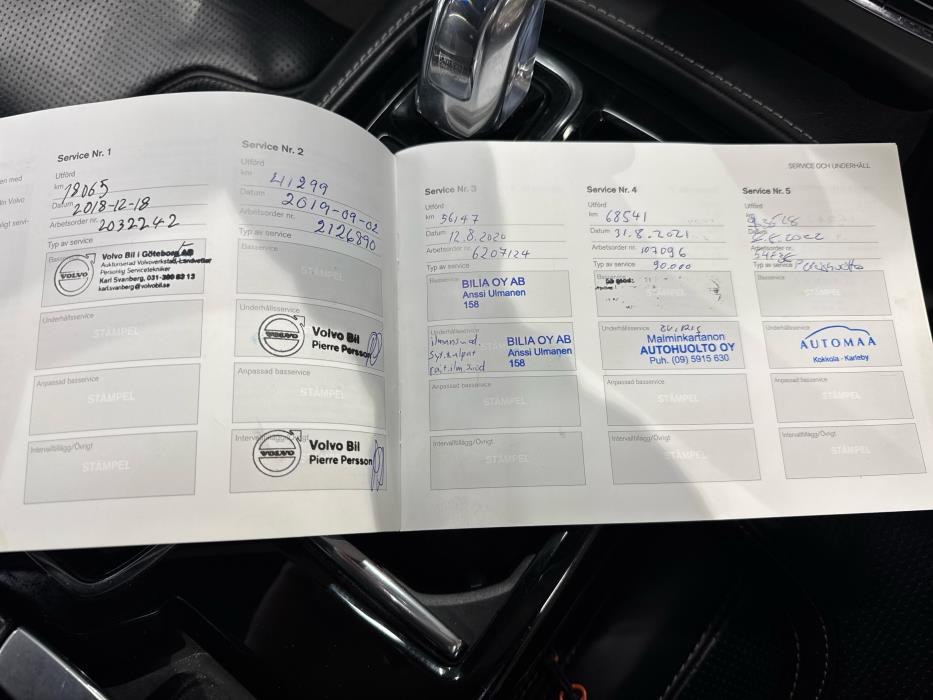 en med
ln Volvo
Service Nr. 1
Utförd
km 19065
Datum 2018-12-18
Arbetsorder nr. 2032242
Typ av service
VOLVO
Volvo Bil i Göteborg AB
Auktoriserad Volvoverkstad, Landvetter
Personlig Servicetekniker
Karl Svanberg, 031-380 63 13
karl.svanberg@volvobil.se
Underhållsservice
STÄMPEL
Anpassad basservice
STÄMPEL
Intervalltillägg/Övrigt
STÄMPEL
Service Nr. 2
Utförd
km 41299
Datum 2019-09-02
Arbetsorder nr. 2126890
Typ av service
Basservice
STÄMPEL
Underhållsservice
VOLVO
Volvo Bil
Pierre Persson
Anpassad basservice
STÄMPEL
VOLVO
Volvo Bil
Pierre Persson
SERVICE OCH UNDERHÅLL
Service Nr. 3
Utförd
km 56147
Datum 12.8.2020
Arbetsorder nr. 6207124
Typ av service
Basservice
BILIA OY AB
Anssi Ulmanen
158
Underhållsservice
BILIA OY AB
Anssi Ulmanen
158
Anpassad basservice
STÄMPEL
Intervalltillägg/Övrigt
STÄMPEL
Service Nr. 4
Utförd
km 68541
Datum 31.8.2021
Arbetsorder nr. 107096
Typ av service 90.000
Basservice
STÄMPEL
Underhållsservice
Malminkartanon
AUTOHUOLTO OY
Puh. (09) 5915 630
Anpassad basservice
STÄMPEL
Intervalltillägg/Övrigt
STÄMPEL
Service Nr. 5
Utförd
km
Datum 8.8.2022
Arbetsorder nr.
Typ av service
Basservice
STÄMPEL
Underhållsservice
AUTOMAA
Kokkola - Karleby
Anpassad basservice
STÄMPEL
Intervalltillägg/Övrigt
STÄMPEL